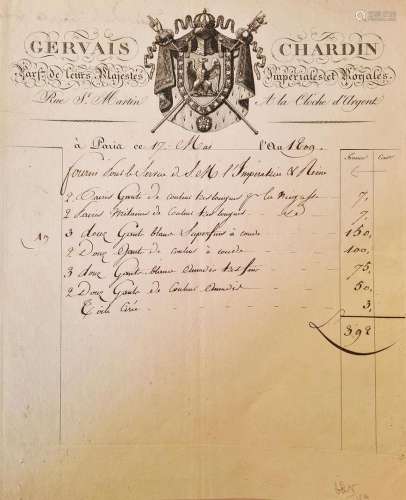 GERVAIS CHARDIN
Parf.r de leurs Majestés Impériales et Royales
Rue St. Martin A la Cloche d'Argent
à Paris ce 17 Mai l'An 1809
Francs Cent
fourni Sous le Service de S. M. l'Imperatrice & Reine
2 paires Gants de couleur tres longues 7,
2 paires mitaines de couleur tres longues 7,
3 douz Gants blanc Superfins à coude 150,
2 Douz Gant de couleur à coude 100,
3 douz Gant blanc tres fins 75,
2 Douz Gants de couleur 50,
Toile Cirée 3,
392